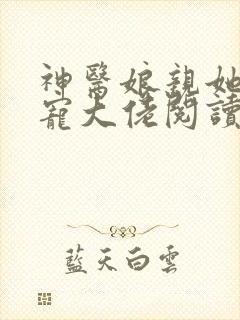 神醫娘親她
寵大佬閱讀
藍天白雲